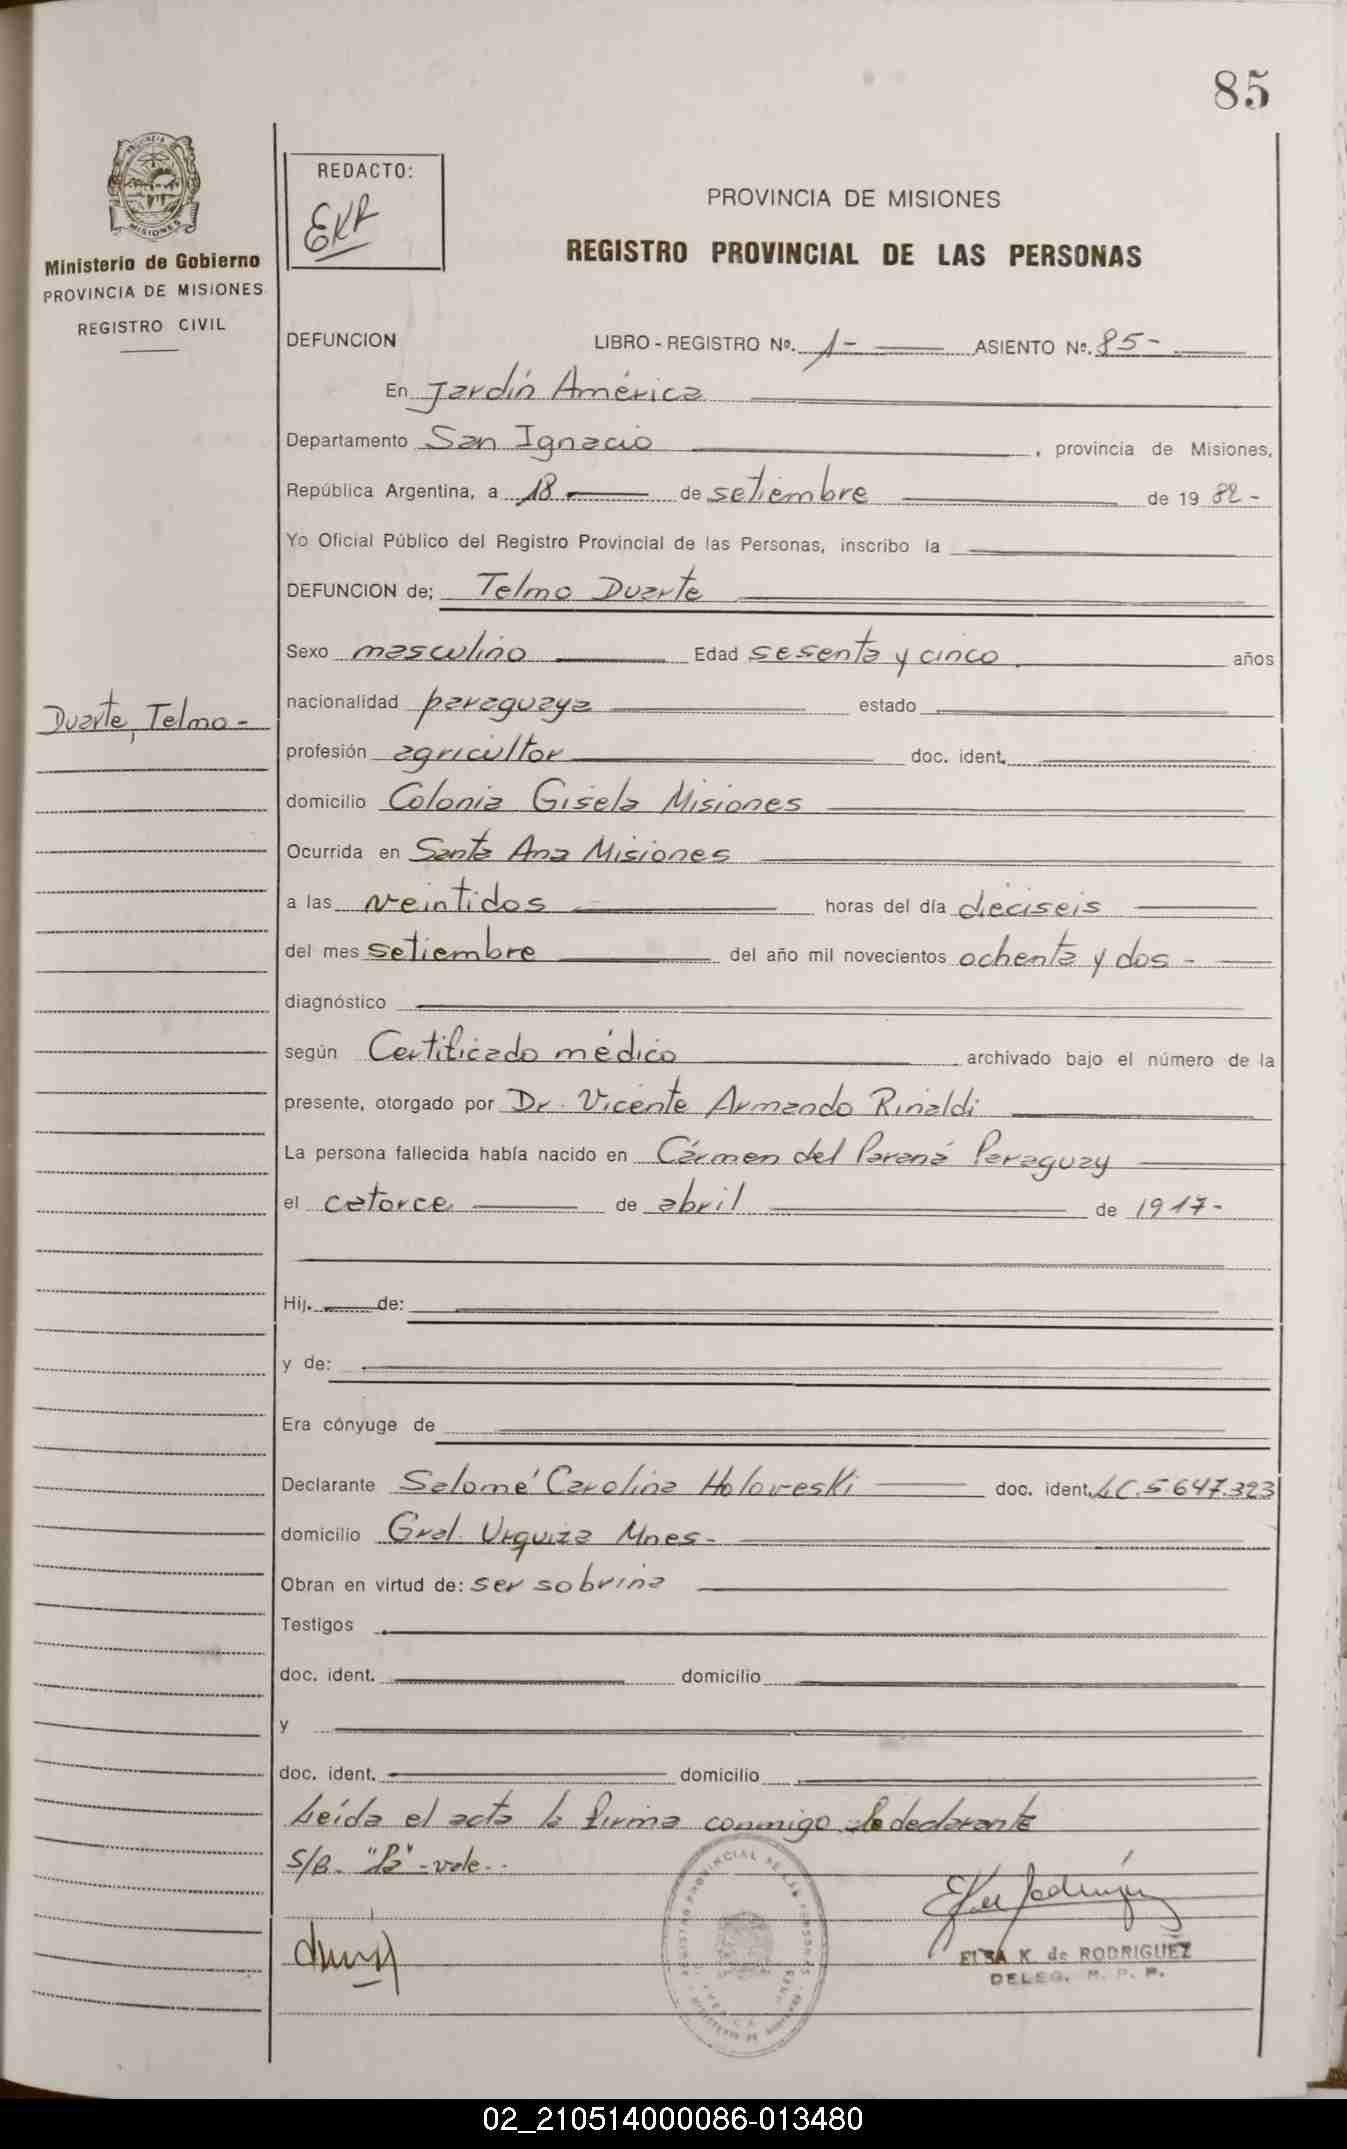 85
PROVINCIA DE MISIONES
REGISTRO PROVINCIAL DE LAS PERSONAS
REDACTO:
EKR
Ministerio de Gobierno
PROVINCIA DE MISIONES
REGISTRO CIVIL
DEFUNCION LIBRO - REGISTRO Nº. 1- ASIENTO Nº. 85-
En Jardín América
Departamento San Ignacio , provincia de Misiones,
República Argentina, a 18 de setiembre de 19 82-
Yo Oficial Público del Registro Provincial de las Personas, inscribo la
DEFUNCION de; Telmo Duarte
Sexo masculino Edad sesenta y cinco años
Duarte, Telmo -
nacionalidad paraguaya estado
profesión agricultor doc. ident.
domicilio Colonia Gisela Misiones
Ocurrida en Santa Ana Misiones
a las veintidos horas del día dieciseis
del mes setiembre del año mil novecientos ochenta y dos -
diagnóstico
según Certificado médico archivado bajo el número de la
presente, otorgado por Dr. Vicente Armando Rinaldi
La persona fallecida había nacido en Cármen del Paraná Paraguay
el catorce de abril de 1917-
Hij. de:
y de:
Era cónyuge de
Declarante Salomé Carolina Holoveski doc. ident. LC.5.647.323
domicilio Gral. Urquiza Mnes-
Obran en virtud de: ser sobrina
Testigos
doc. ident. domicilio
y
doc. ident. domicilio
Leída el acta la firma conmigo la declarante
S/R. "la" - vale-
ELSA K. de RODRIGUEZ
DELEG. R. P. P.
02_210514000086-013480